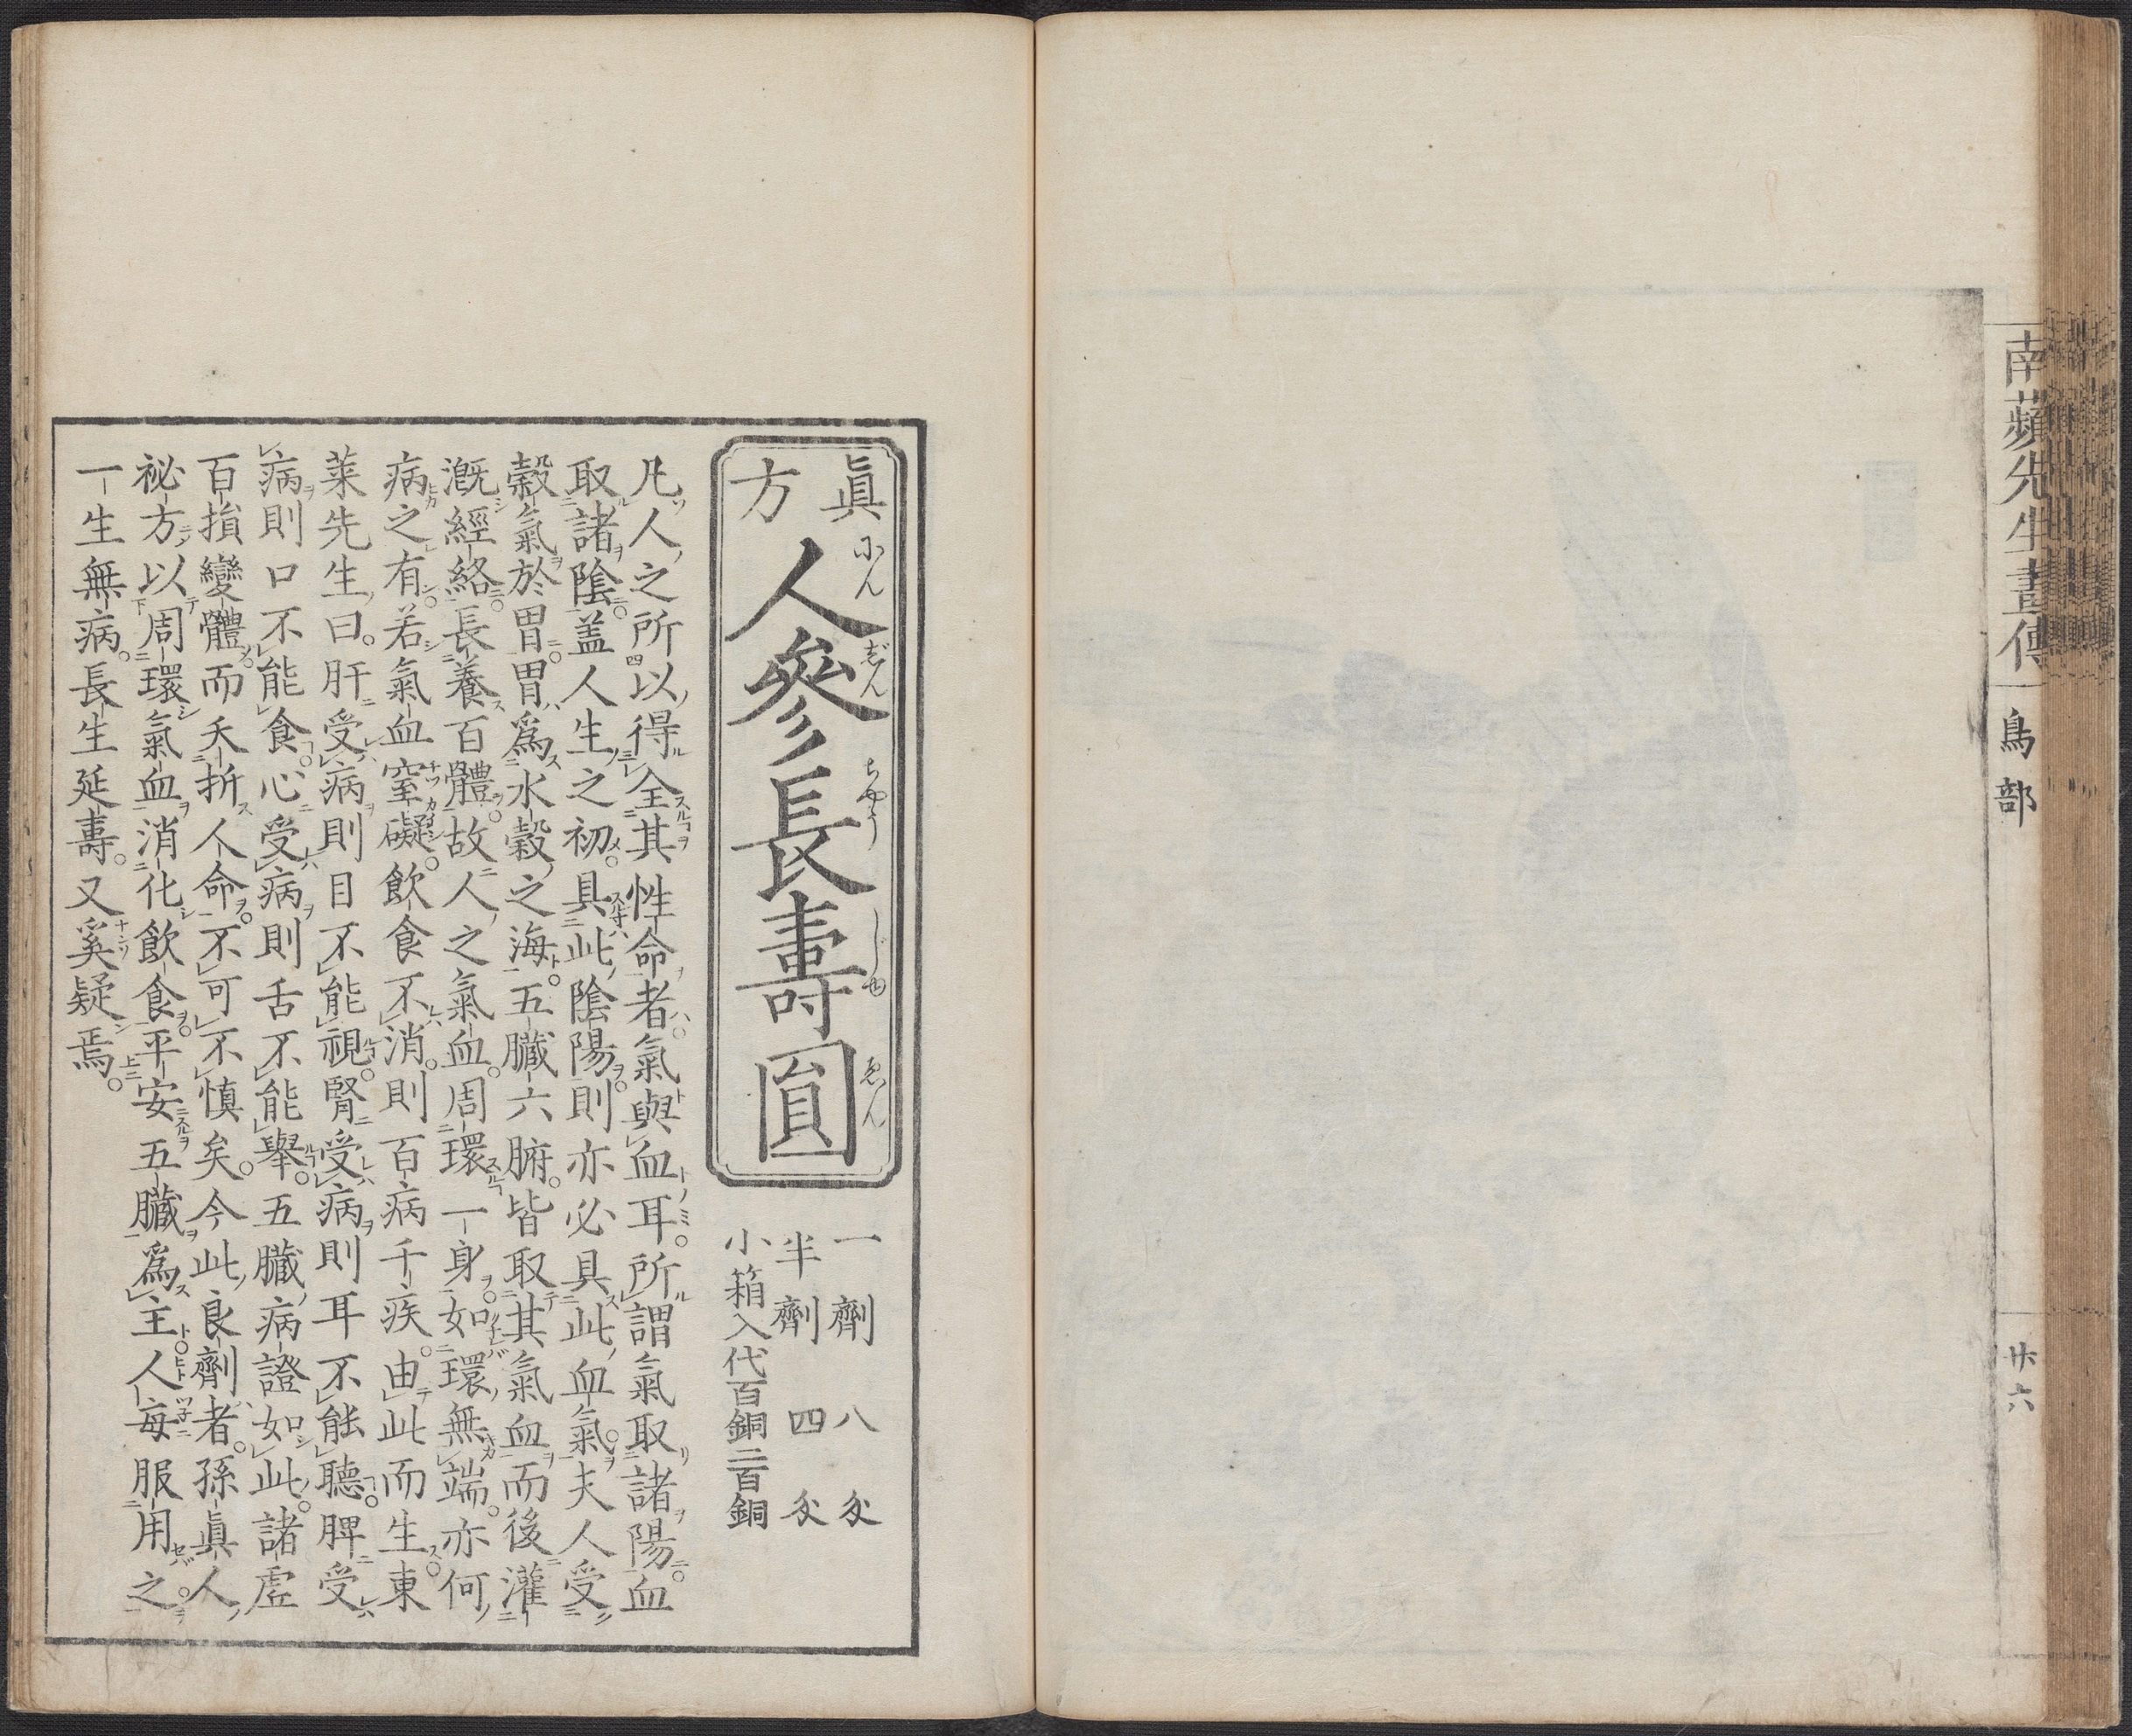 南蘋先生畫傳
鳥部
廿六
眞方
人參長壽圓
にん
じん
ちやう
じゆ
ゑん
一劑八匁
半劑四匁
小箱入代百銅二百銅
凡人之所以得全其性命者氣與血耳。所謂氣取諸陽。血
取諸陰。盖人生之初。具此陰陽。則亦必具此血氣。夫人受
穀氣於胃。胃爲水穀之海。五臟六腑。皆取其氣血而後灌
漑經絡。長養百體。故人之氣血。周環一身。如環無端。亦何
病之有。若氣血窒礙。飲食不消。則百病千疾。由此而生。東
萊先生曰。肝受病則目不能視。腎受病則耳不能聽。脾受
病則口不能食。心受病則舌不能舉。五臟病證如此。諸虛
百損變體而夭折人命。不可不慎矣。今此良劑者。孫眞人
祕方以周環氣血消化飲食。平安五臟爲主。人每服用之。
一生無病。長生延壽。又奚疑焉。